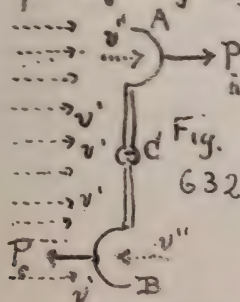 A
v"
P
n
v'
v'
C
Fig.
632
v'
P
s
v"
v'
B